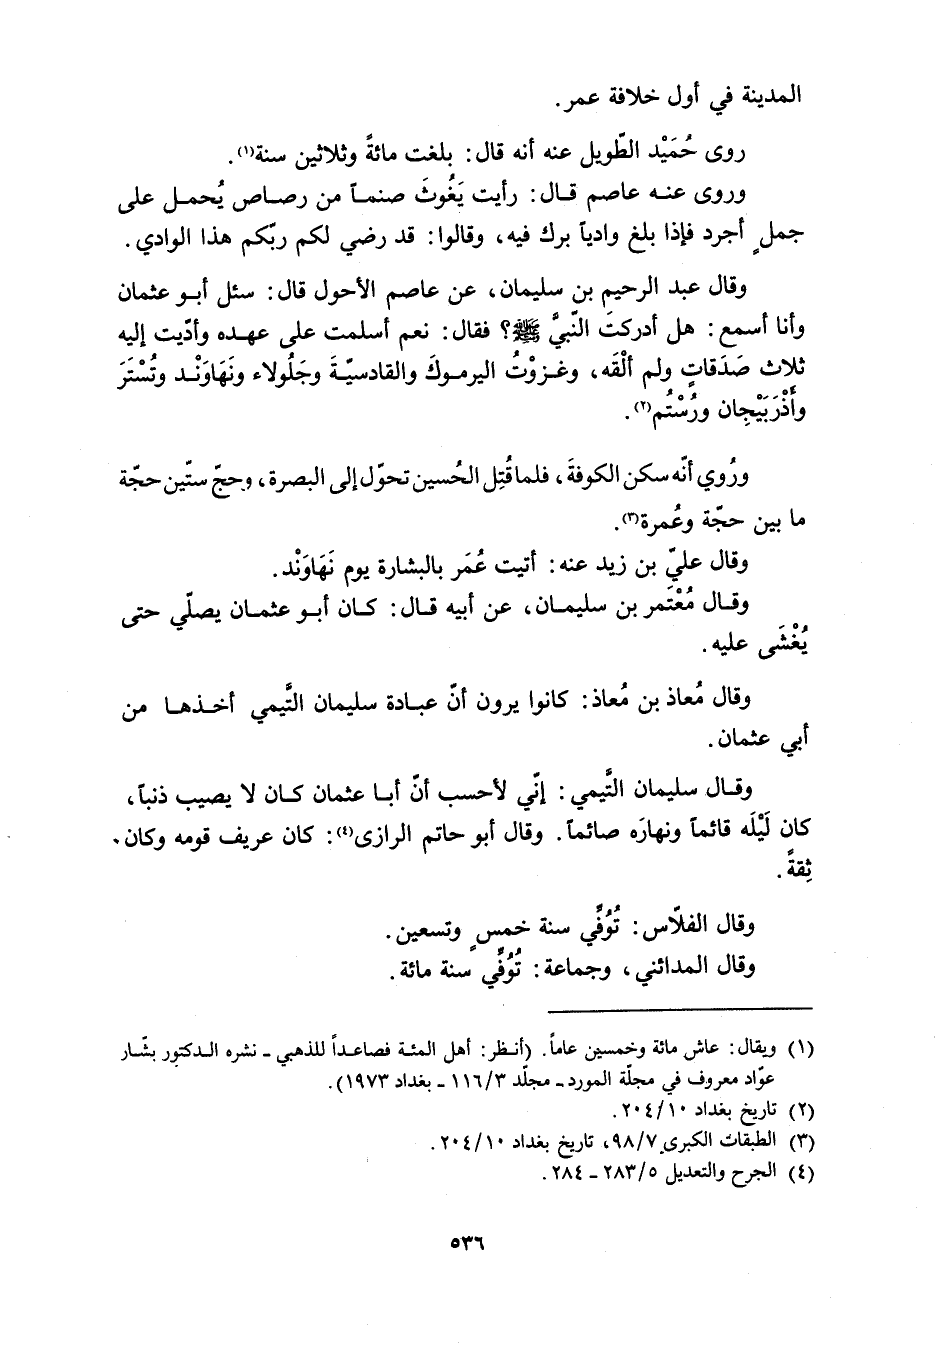 المدينة في أول خلافة عمر.
روى حُمَيْد الطّويل عنه أنه قال: بلغت مائةً وثلاثين سنة(١).
وروى عنه عاصم قال: رأيت يَغُوثَ صنماً من رصاص يُحمل على
جملٍ أجرد فإذا بلغ وادياً برك فيه، وقالوا: قد رضي لكم ربّكم هذا الوادي.
وقال عبد الرحيم بن سليمان، عن عاصم الأحول قال: سئل أبو عثمان
وأنا أسمع: هل أدركتَ النّبيَّ ﷺ؟ فقال: نعم أسلمت على عهده وأدّيت إليه
ثلاث صَدَقاتٍ ولم ألْقَه، وغزوْتُ اليرموكَ والقادسيّةَ وجَلُولاء ونَهَاوَنْد وتُسْتَرَ
وأَذْرَبَيْجان ورُسْتُم(٢).
ورُوي أنّه سكن الكوفةَ، فلما قُتِل الحُسين تحوّل إلى البصرة، وحجّ ستّين حجّة
ما بين حجّة وعُمرة(٣).
وقال عليّ بن زيد عنه: أتيت عُمَر بالبشارة يوم نَهَاوَنْد.
وقال مُعْتَمر بن سليمان، عن أبيه قال: كان أبو عثمان يصلّي حتى
يُغْشَى عليه.
وقال مُعاذ بن مُعاذ: كانوا يرون أنّ عبادة سليمان التَّيمي أخذها من
أبي عثمان.
وقال سليمان التَّيمي: إنّي لأحسب أنّ أبا عثمان كان لا يصيب ذنباً،
كان لَيْلَه قائماً ونهارَه صائماً. وقال أبو حاتم الرازى(٤): كان عريف قومه وكان
ثِقةً.
وقال الفلّاس: تُوُفِّي سنة خمسٍ وتسعين.
وقال المدائني، وجماعة: تُوُفِّي سنة مائة.
(١) ويقال: عاش مائة وخمسين عاماً. (أنظر: أهل المئة فصاعداً للذهبي ـ نشره الدكتور بشّار
عوّاد معروف في مجلّة المورد ـ مجلّد ١١٦/٣ ـ بغداد ١٩٧٣).
(٢) تاريخ بغداد ٢٠٤/١٠.
(٣) الطبقات الكبرى ٩٨/٧، تاريخ بغداد ٢٠٤/١٠.
(٤) الجرح والتعديل ٢٨٣/٥ ـ ٢٨٤.
٥٣٦